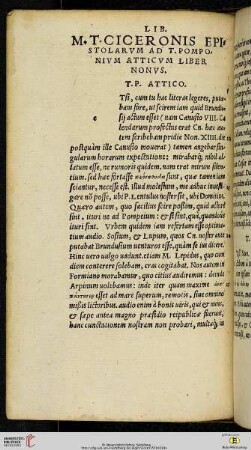 LIB.
M·T·CICERONIS EPI
STOLARVM AD T. POMPO
NIVM ATTICVM LIBER
NONVS.
T. P. ATTICO.
Tsi, cum tu has literas legeres, puta
bam fore, ut scirem iam quid Brundu
sij actum esset (nam Canusio VIII. Ca
lendarum profectus erat Cn. hæc au
tem scribebam pridie Non. XIIII. die
postquàm ille Canusio mouerat) tamen angebar sin
gularum horarum expectatione: mirabarq; nihil al
latum esse, ne rumoris quidem. nam erat mirum silen
tium. sed hæc fortasse sunt, quæ tamen iam
sciantur, necesse est. illud molestum, me adhuc inuesti
gare nō posse, ubi P. Lentulus noster sit, ubi Domitius.
Quæro autem, quo facilius scire possim, quid acturi
sint, ituri ne ad Pompeium: & si sint, qua, quandoúe
ituri sint. Vrbem quidem iam refertam esse optima
tium audio. Sosium, & Lupum, quos Cn. noster ante
putabat Brundusium uenturos esse, quàm se ius dicere.
Hinc uero uulgo uadunt. etiam M. Lepidus, quo cum
diem conterere solebam, cras cogitabat. Nos autem in
Formiano morabamur, quo citius audiremus: deinde
Arpinum uolebamus: inde iter quà maxime
esset ad mare superum, remotis, siue omnino
missis lictoribus. audio enim à bonis uiris, qui & nunc,
& sæpe antea magno præsidio reipublicæ fuerunt,
hanc cunctationem nostram non probari, multaq; in